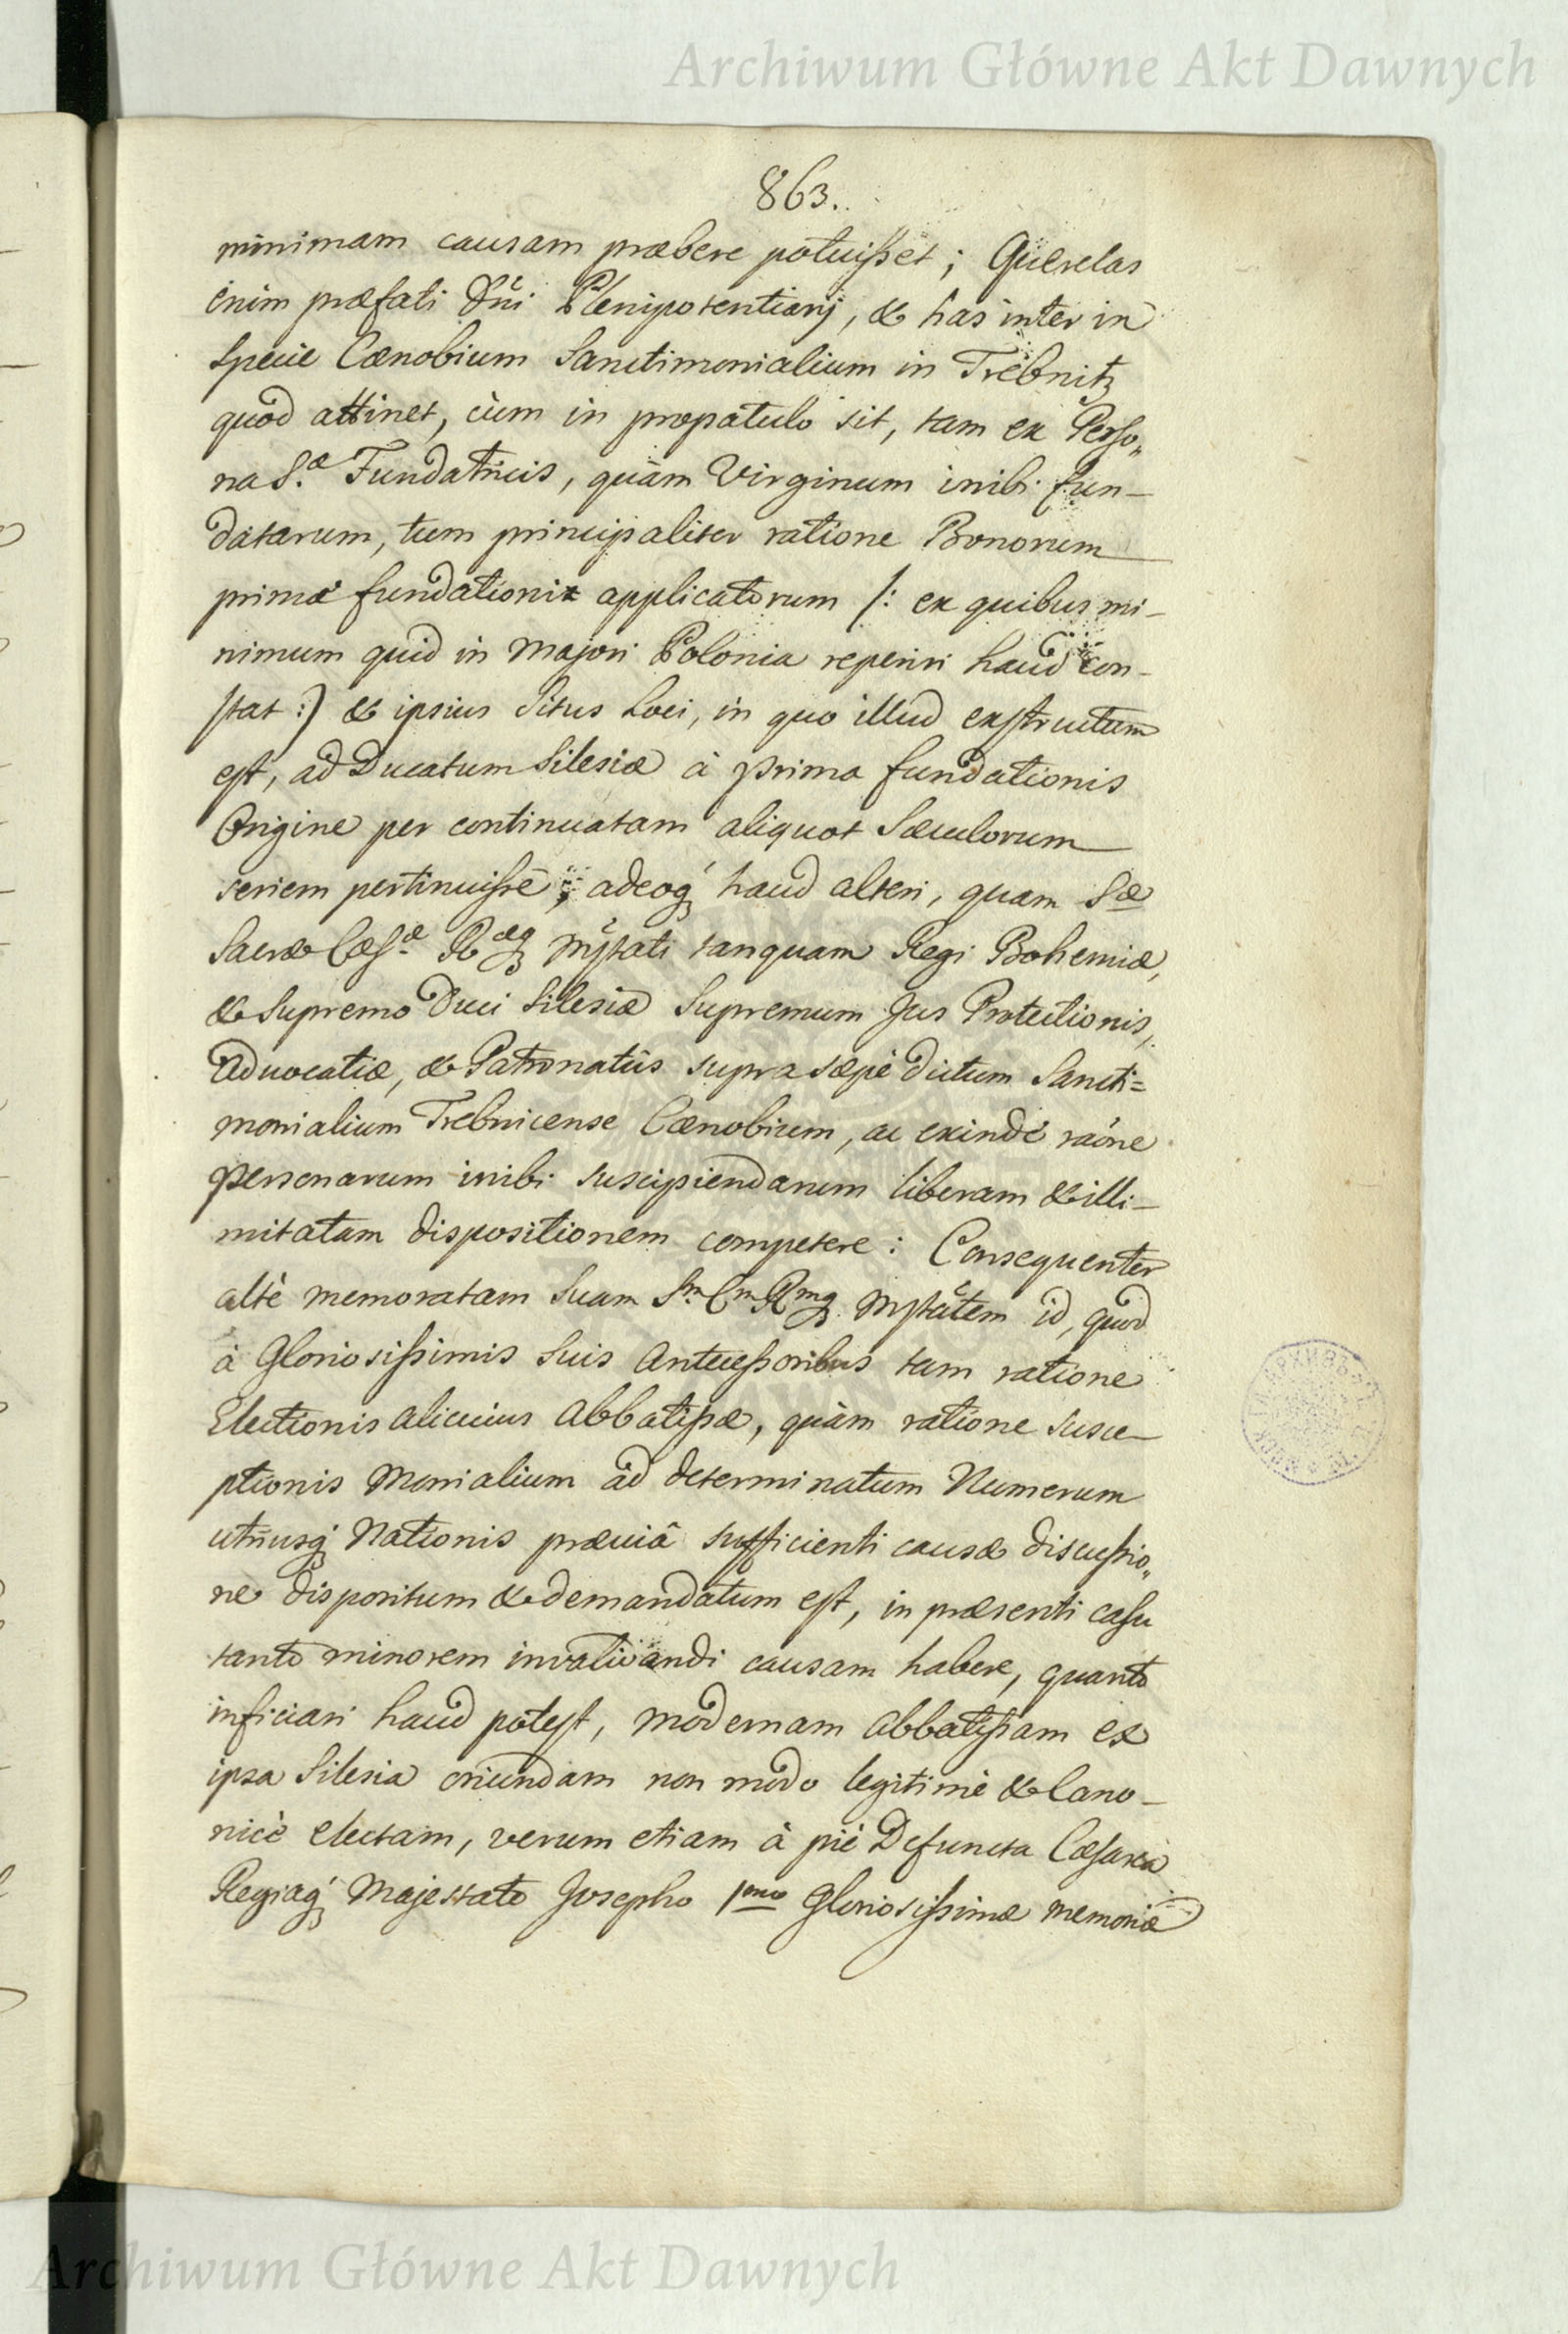 Archiwum Główne Akt Dawnych
863.
minimam causam præbere potuisset; Querelas
enim præfati Dni Plenipotentiarij, & has inter in
specie Cænobium Sanctimonialium in Trebnitz
quod attinet, cùm in propatulo sit, tam ex Perso„
na S.æ Fundatricis, quàm Virginum inibi fun-
datarum, tum principaliter ratione Bonorum
primæ fundationis applicatorum /: ex quibus mi-
nimum quid in Majori Polonia reperiri haud con-
stat :/ & ipsius Situs Loci, in quo illud exstructum
est, ad Ducatum Silesiæ à prima fundationis
Origine per continuatam aliquot Sæculorum
seriem pertinuisse; adeoq́ haud alteri, quam Sæ
Sacræ Cæs.æ Ræq Mŝtati tanquam Regi Bohemiæ,
& supremo Duci Silesiæ Supremum Jus Protectionis,
Advocatiæ, & Patronatûs supra sæpè dictum Sancti=
monialium Trebnicense Cænobium, ac exindè raõne
personarum inibi suscipiendarum liberam & illi-
mitatam dispositionem competere: Consequenter
altè memoratam Suam Sm Cm Rmq Mŝtatem id, quod
à Gloriosissimis Suis Antecessoribus tam ratione
Electionis alicuius Abbatissæ, quàm ratione susce-
ptionis Monialium ad determinatum Numerum
utriusq́ Nationis præviâ sufficienti causæ discussio„
ne dispositum & demandatum est, in præsenti casu
tanto minorem invalidandi causam habere, quanto
inficiari haud potest, modernam Abbatissam ex
ipsa Silesia oriundam non modo legitimè & Cano-
nicè electam, verum etiam à piè Defuncta Cæsarea
Regiaq́ Majestate Josepho 1mo Gloriosissimæ memoriæ
Archiwum Główne Akt Dawnych